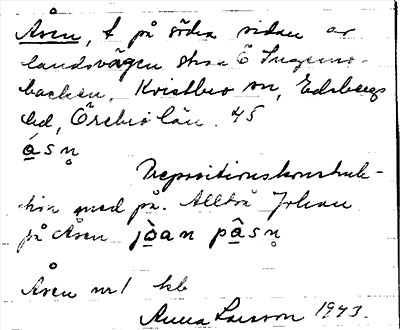 Åsen, t på södra sidan av
landsvägen strax Ö Ingemo-
backen, Kvistbro sn, Edsbergs
hd, Örebro län. 45
á s n̥
Prepositionskonstruk-
tion med på. Alltså Johan
på Åsen jòan pâsn̥
Åsen nr 1 kb
Anna Larsson 1943.